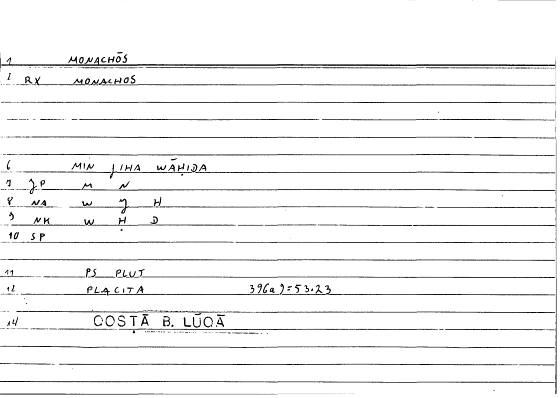 1 MONACHŌS
2 RX MONACHOS
6 MIN ǦIHA WĀḤIDA
7 JP M N
8 NA W J H
9 NK W Ḥ D
10 SP
11 PS PLUT
12 PLACITA 396a9=53.23
14 COSṬĀ B. LŪQĀ